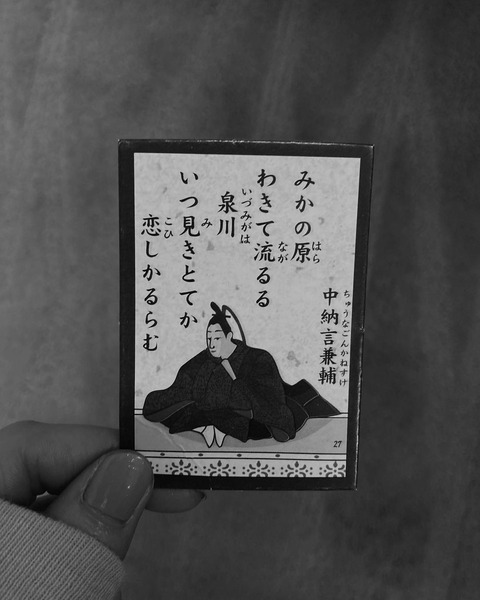 中納言兼輔
ちゅうなごんかねすけ
みかの原
はら
わきて流るる
なが
泉川
いづみがは
いつ見きとてか
み
恋しかるらむ
こひ
27